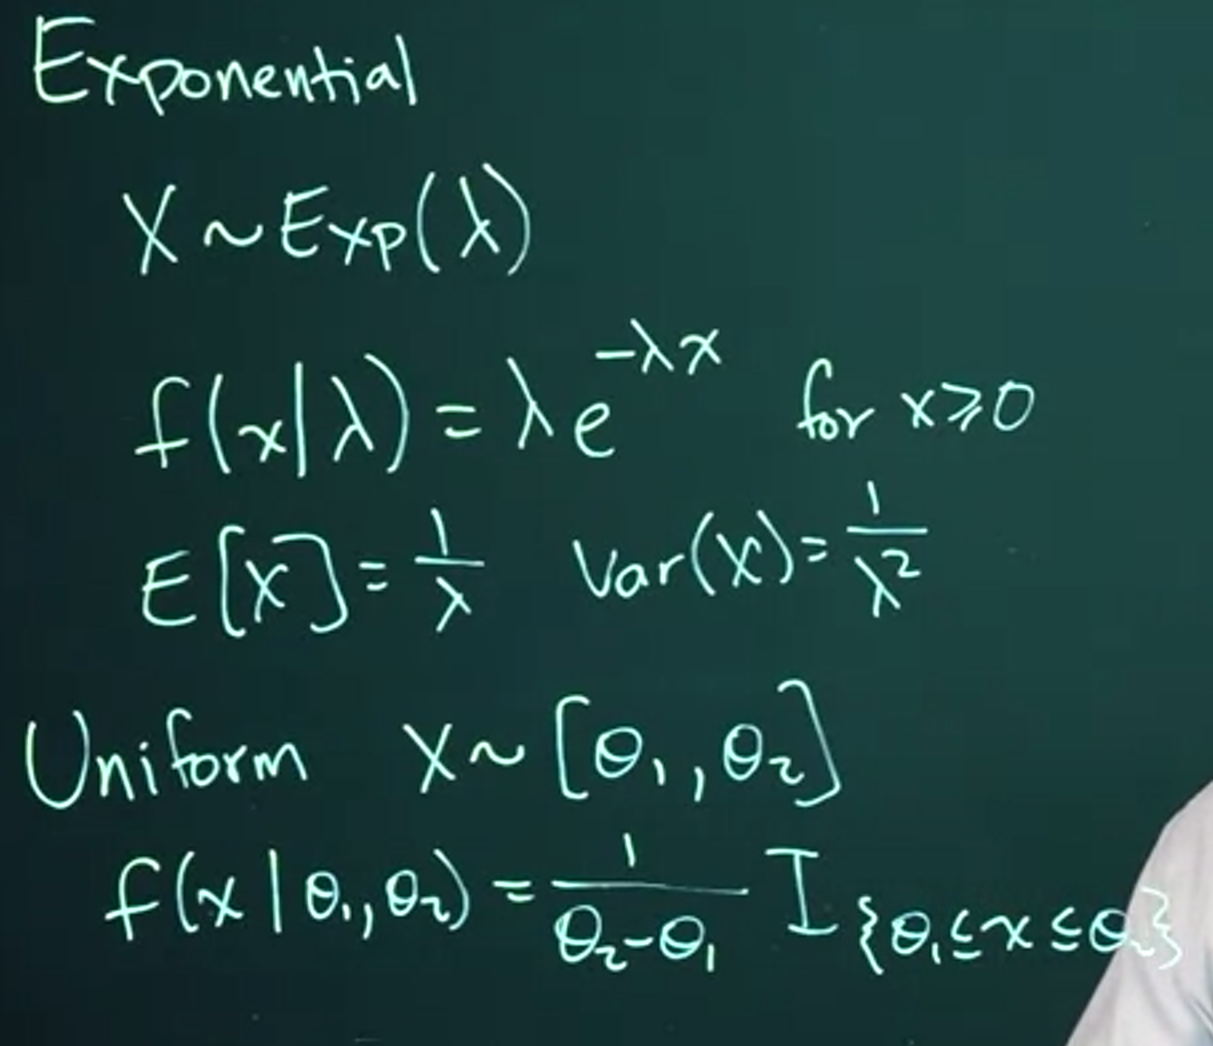 Exponential
X ~ Exp(λ)
f(x|λ) = λe^{-λx} for x ≥ 0
E[X] = 1/λ Var(X) = 1/λ²
Uniform X ~ [θ₁, θ₂]
f(x|θ₁, θ₂) = 1/(θ₂-θ₁) I_{θ₁ ≤ x ≤ θ₂}